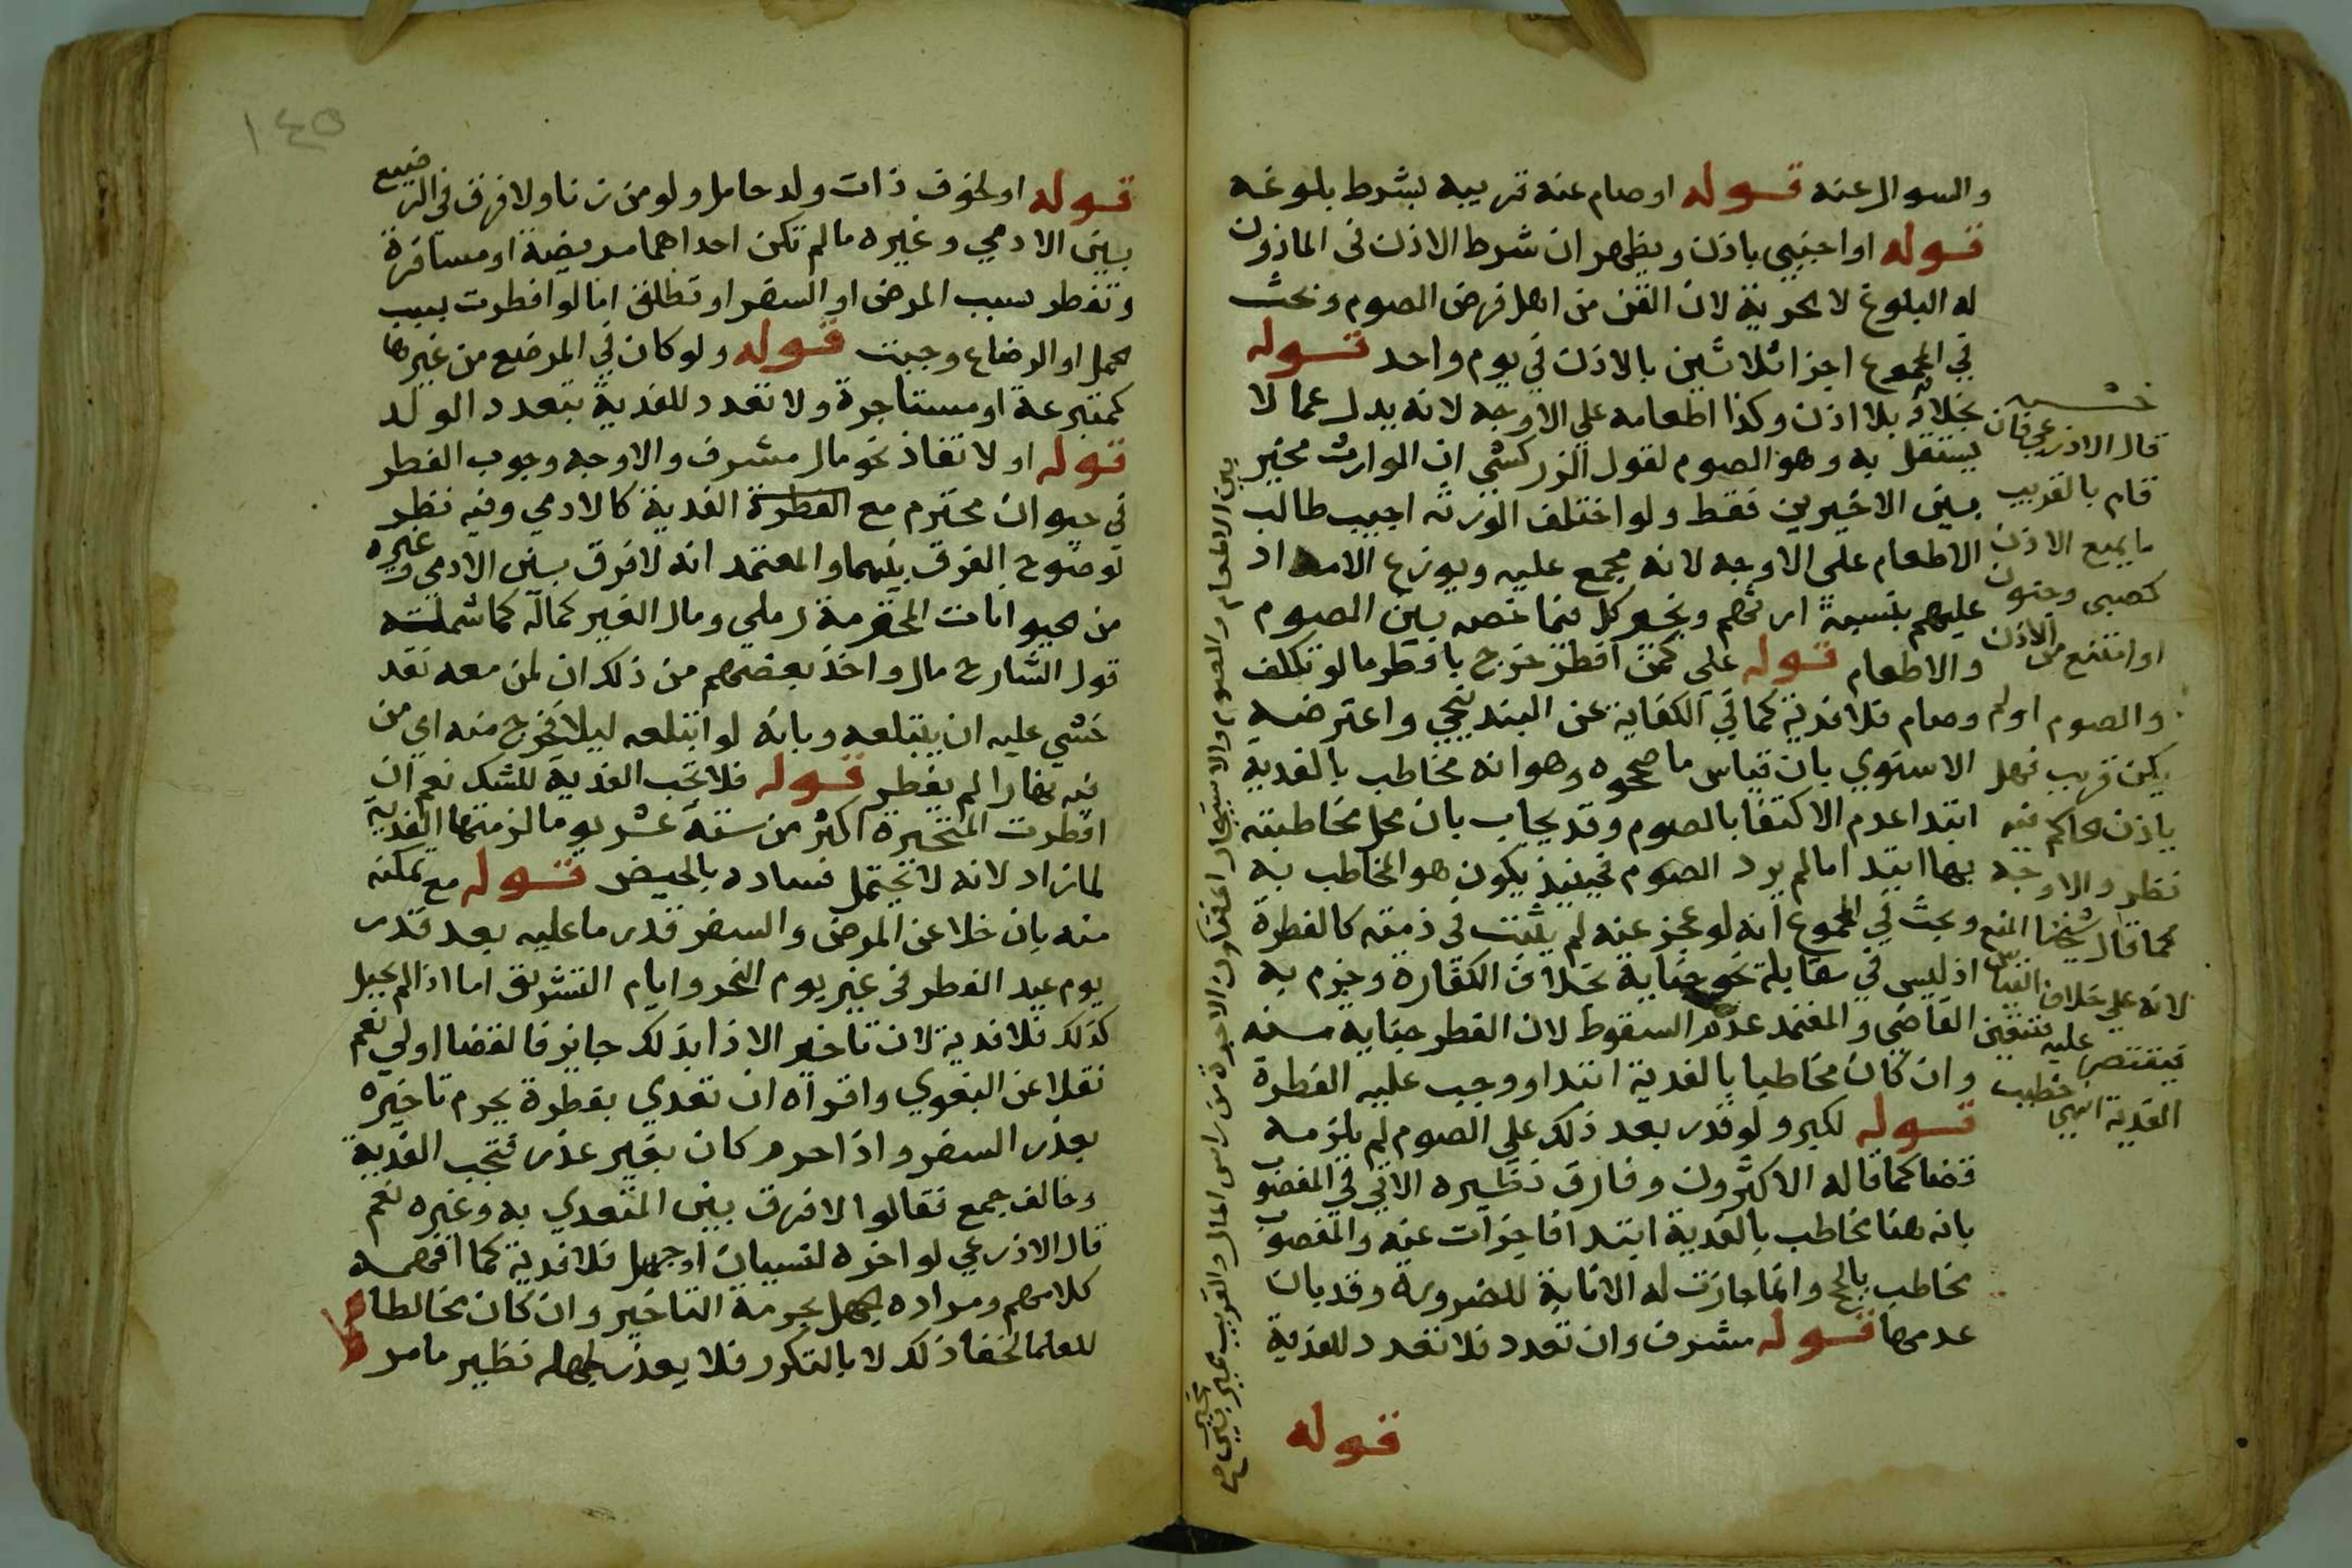 والسوال عنه قوله او صام عنه قريبه بشرط بلوغه
قوله او اجنبي باذن ويظهر ان شرط الاذن في الماذون
له البلوغ لا الحرية لان القن من اهل فرض الصوم وبحث
في المجموع اجزا ثلاثين بالاذن في يوم واحد قوله
بخلافه بلا اذن وكذا اطعامه علي الاوجه لانه بدل عما لا
يستقل به وهو الصوم لقول الزركشي ان الوارث مخير
بين الاخيرين فقط ولو اختلف الورثه اجيب طالب
الاطعام على الاوجه لانه مجمع عليه ويوزع الامداد
عليهم بنسبة ارثهم ويخير كل فيما خصه بين الصوم
والاطعام قوله علي كمن افطر خرج بافطر ما لو تكلف
وصام فلا فدية كما في الكفاية عن البندنيجي واعترضه
الاسنوي بان قياس ما صححوه وهو انه مخاطب بالفدية
ابتدا عدم الاكتفا بالصوم وقد يجاب بان محل مخاطبته
بها ابتدا ما لم يرد الصوم فحينئذ يكون هو المخاطب به
وبحث في المجموع انه لو عجز عنه لم يثبت في ذمته كالفطرة
اذ ليس في مقابلة نحو جناية بخلاف الكفارة وجزم به
القاضي والمعتمد عدم السقوط لان الفطر جناية منه
وان كان مخاطبا بالفدية ابتدا ووجب عليه الفطرة
قوله لكبر ولو قدر بعد ذلك علي الصوم لم يلزمه
قضا كما قاله الاكثرون وفارق نظيره الاتي في المعضوب
بانه هنا مخاطب بالفدية ابتدا فاجزات عنه والمعضوب
مخاطب بالحج وانما جازت له الانابة للضرورة وقد بان
عدمها قوله مشرف وان تعدد فلا تعدد للفدية
قوله
قال الاذرعي فان
قام بالقريب
ما يمنع الاذن
كصبي وجنون
او امتنع من الاذن
والصوم او لم
يكن قريب فهل
ياذن الحاكم فيه
نظر والاوجه
كما قال شيخنا المنع
لانه علي خلاف القياس
فيقتصر عليه فتتعين
الفدية انتهي خطيب
بين الاطعام والصوم والاستيجار
من راس المال والقريب مخير بين
قوله او لخوف ذات ولد حامل ولو من زنا ولا فرق في الرضيع
بين الادمي وغيره ما لم تكن احداهما مريضة او مسافرة
وتفطر بسبب المرض او السفر او تطلق اما لو افطرت بسبب
الحمل او الرضاع وجبت قوله ولو كان في المرضع من غيرها
كمتبرعة او مستاجرة ولا تعدد للفدية بتعدد الولد
قوله او لانقاذ نحو مال مشرف والاوجه وجوب الفطر
في حيوان محترم مع الفطرة الفدية كالادمي وفيه نظر
لوضوح الفرق بينهما والمعتمد انه لا فرق بين الادمي وغيره
من الحيوانات المحترمة رملي ومال الغير كماله كما شملته
قول الشارح مال واخذ بعضهم من ذلك ان لمن معه نقد
خشي عليه ان يبتلعه وبانه لو ابتلعه ليلا فخرج منه اي من
فيه نهارا لم يفطر قوله فلا تجب الفدية للشك نعم ان
افطرت المتحيرة اكثر من ستة عشر يوما لزمتها الفدية
لما زاد لانه لا يحتمل فساده بالحيض قوله مع تمكنه
منه بان خلا عن المرض والسفر قدر ما عليه بعد قدر
يوم عيد الفطر في غير يوم النحر وايام التشريق اما اذا لم يخل
كذلك فلا فدية لان تاخير الاذا بذلك جايز فالقضا اولي نعم
نقلا عن البغوي واقراه ان تعدي بفطرة يحرم تاخيره
بعذر السفر واذا حرم كان بغير عذر فتجب الفدية
وخالف جمع فقالوا لا فرق بين المتعدي به وغيره نعم
قال الاذرعي لو اخره لنسيان او جهل فلا فدية كما افهمه
كلامهم ومراده الجهل بحرمة التاخير وان كان مخالطا
للعلما لخفا ذلك لا بالتكرر فلا يعذر لجهله نظير ما مر
١٤٥